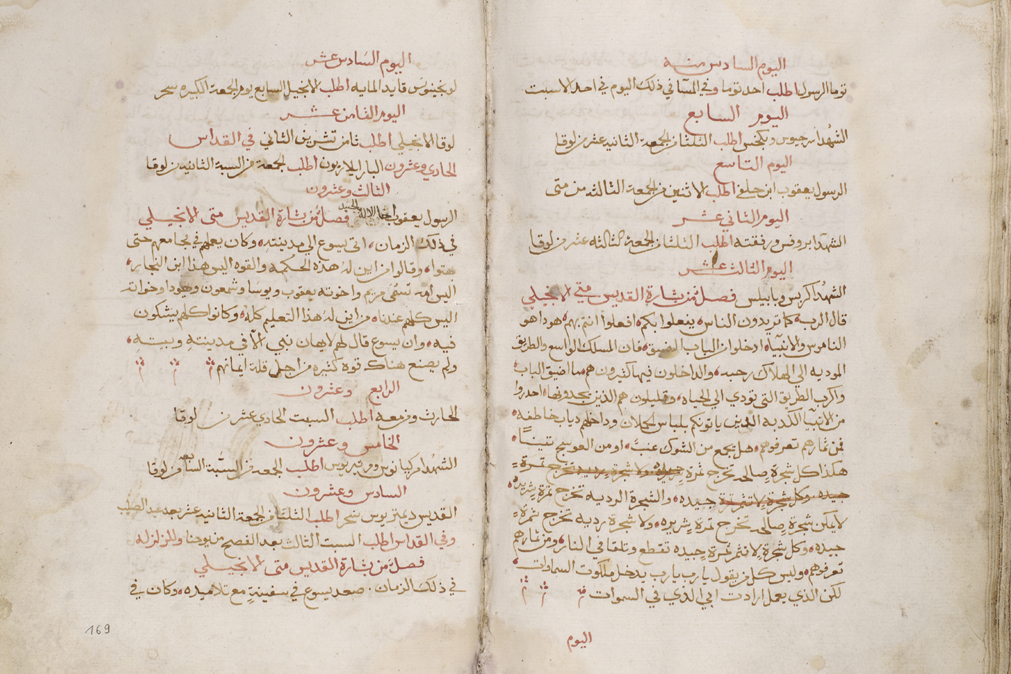 اليوم السادس منه
توما الرسول اطلب احد توما وفي المسا في ذلك اليوم في احد الاسبت
اليوم السابع
الشهدا سرجيوس وبكخس اطلب الثلثا من الجمعة الثانيه عشر من لوقا
اليوم التاسع
الرسول يعقوب ابن حلفى اطلب الاثنين من الجمعة الثالثه من متى
اليوم الثاني عشر
الشهدا بروفس ورفقته اطلب الثلثا من الجمعة الثالثه عشر من لوقا
اليوم الثالث عشر
الشهدا كربس وبابيلس فصل من بشارة القديس متى الانجيلي
قال الرب كما تريدون الناس يفعلوا بكم افعلوا انتم بهم هودا هو
الناموس والانبيآ ادخلوا من الباب الضيق فان المسلك الواسع والطريق
الموديه الى الهلاك رحبه والداخلون فيها كثيرون هم ما اضيق الباب
واكرب الطريق التي تودي الى الحياه وقليلون هم الذين يجدوها احدروا
من الانبيا الكدبه الدين ياتونكم بلباس الحملان وداخلهم دياب خاطفه
فمن ثمارهم تعرفوهم هل يجمع من الشوك عنب او من العوسج تينا
هكذا كل شجرة صالحه تخرج ثمرة
جيده والشجرة الرديه تخرج ثمرة شريره
لا يمكن شجرة صالحه تخرج ثمرة شريره ولا شجرة رديه تخرج ثمرة
جيده وكل شجرة لا تثمر ثمرة جيده تقطع وتلقا في النار ومن ثمارهم
تعرفوهم وليس كل من يقول يا رب يا رب يدخل ملكوت السماوات
لكن الذي يعمل ارادت ابي الذي في السموات
اليوم
اليوم السادس عشر
لونجينوس قايد المايه اطلب الانجيل السابع يوم الجمعة الكبيره سحر
اليوم الثامن عشر
لوقا الانجيلي اطلب ثامن تشرين الثاني في القداس
الحادي وعشرون البار ايلاريون اطلب الجمعة من السبة الثانيه من لوقا
الثالث وعشرون
الرسول يعقوب اخا الاله فصل من بشارة القديس متى الانجيلي
في ذلك الزمان اتى يسوع الى مدينته وكان يعلم في مجامعهم حتى
بهتوا وقالوا من اين له هذه الحكمه والقوه اليس هذا ابن النجار
اليس امه تسمى مريم واخوته يعقوب ويوسا وشمعون ويهودا واخواته
اليس كلهم عندنا من اين له هذا التعليم كله وكانوا كلهم يشكون
فيه وان يسوع قال لهم لا يهان نبي الا في مدينته وبيته
ولم يصنع هناك قوه كثيره من اجل قلة ايمانهم
الرابع وعشرون
الحارث ورفقته اطلب السبت الحادي عشر من لوقا
الخامس وعشرون
الشهدا مركيانوس ومرتيريوس اطلب الجمعة من السبة السابعه من لوقا
السادس وعشرون
القديس ديمتريوس سحر اطلب الثلثا من الجمعة الثانيه عشر بعد عيد الصليب
وفي القداس اطلب السبت الثالث بعد الفصح من يوحنا وللزلزله
فصل من بشارة القديس متى الانجيلي
في ذلك الزمان صعد يسوع في سفينة مع تلاميده وكان في
169